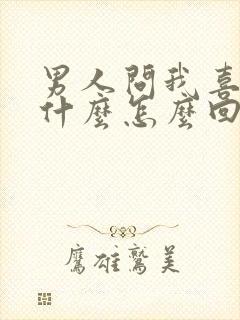 男人問我喜
什麼怎麼回
鷹雄鷲美